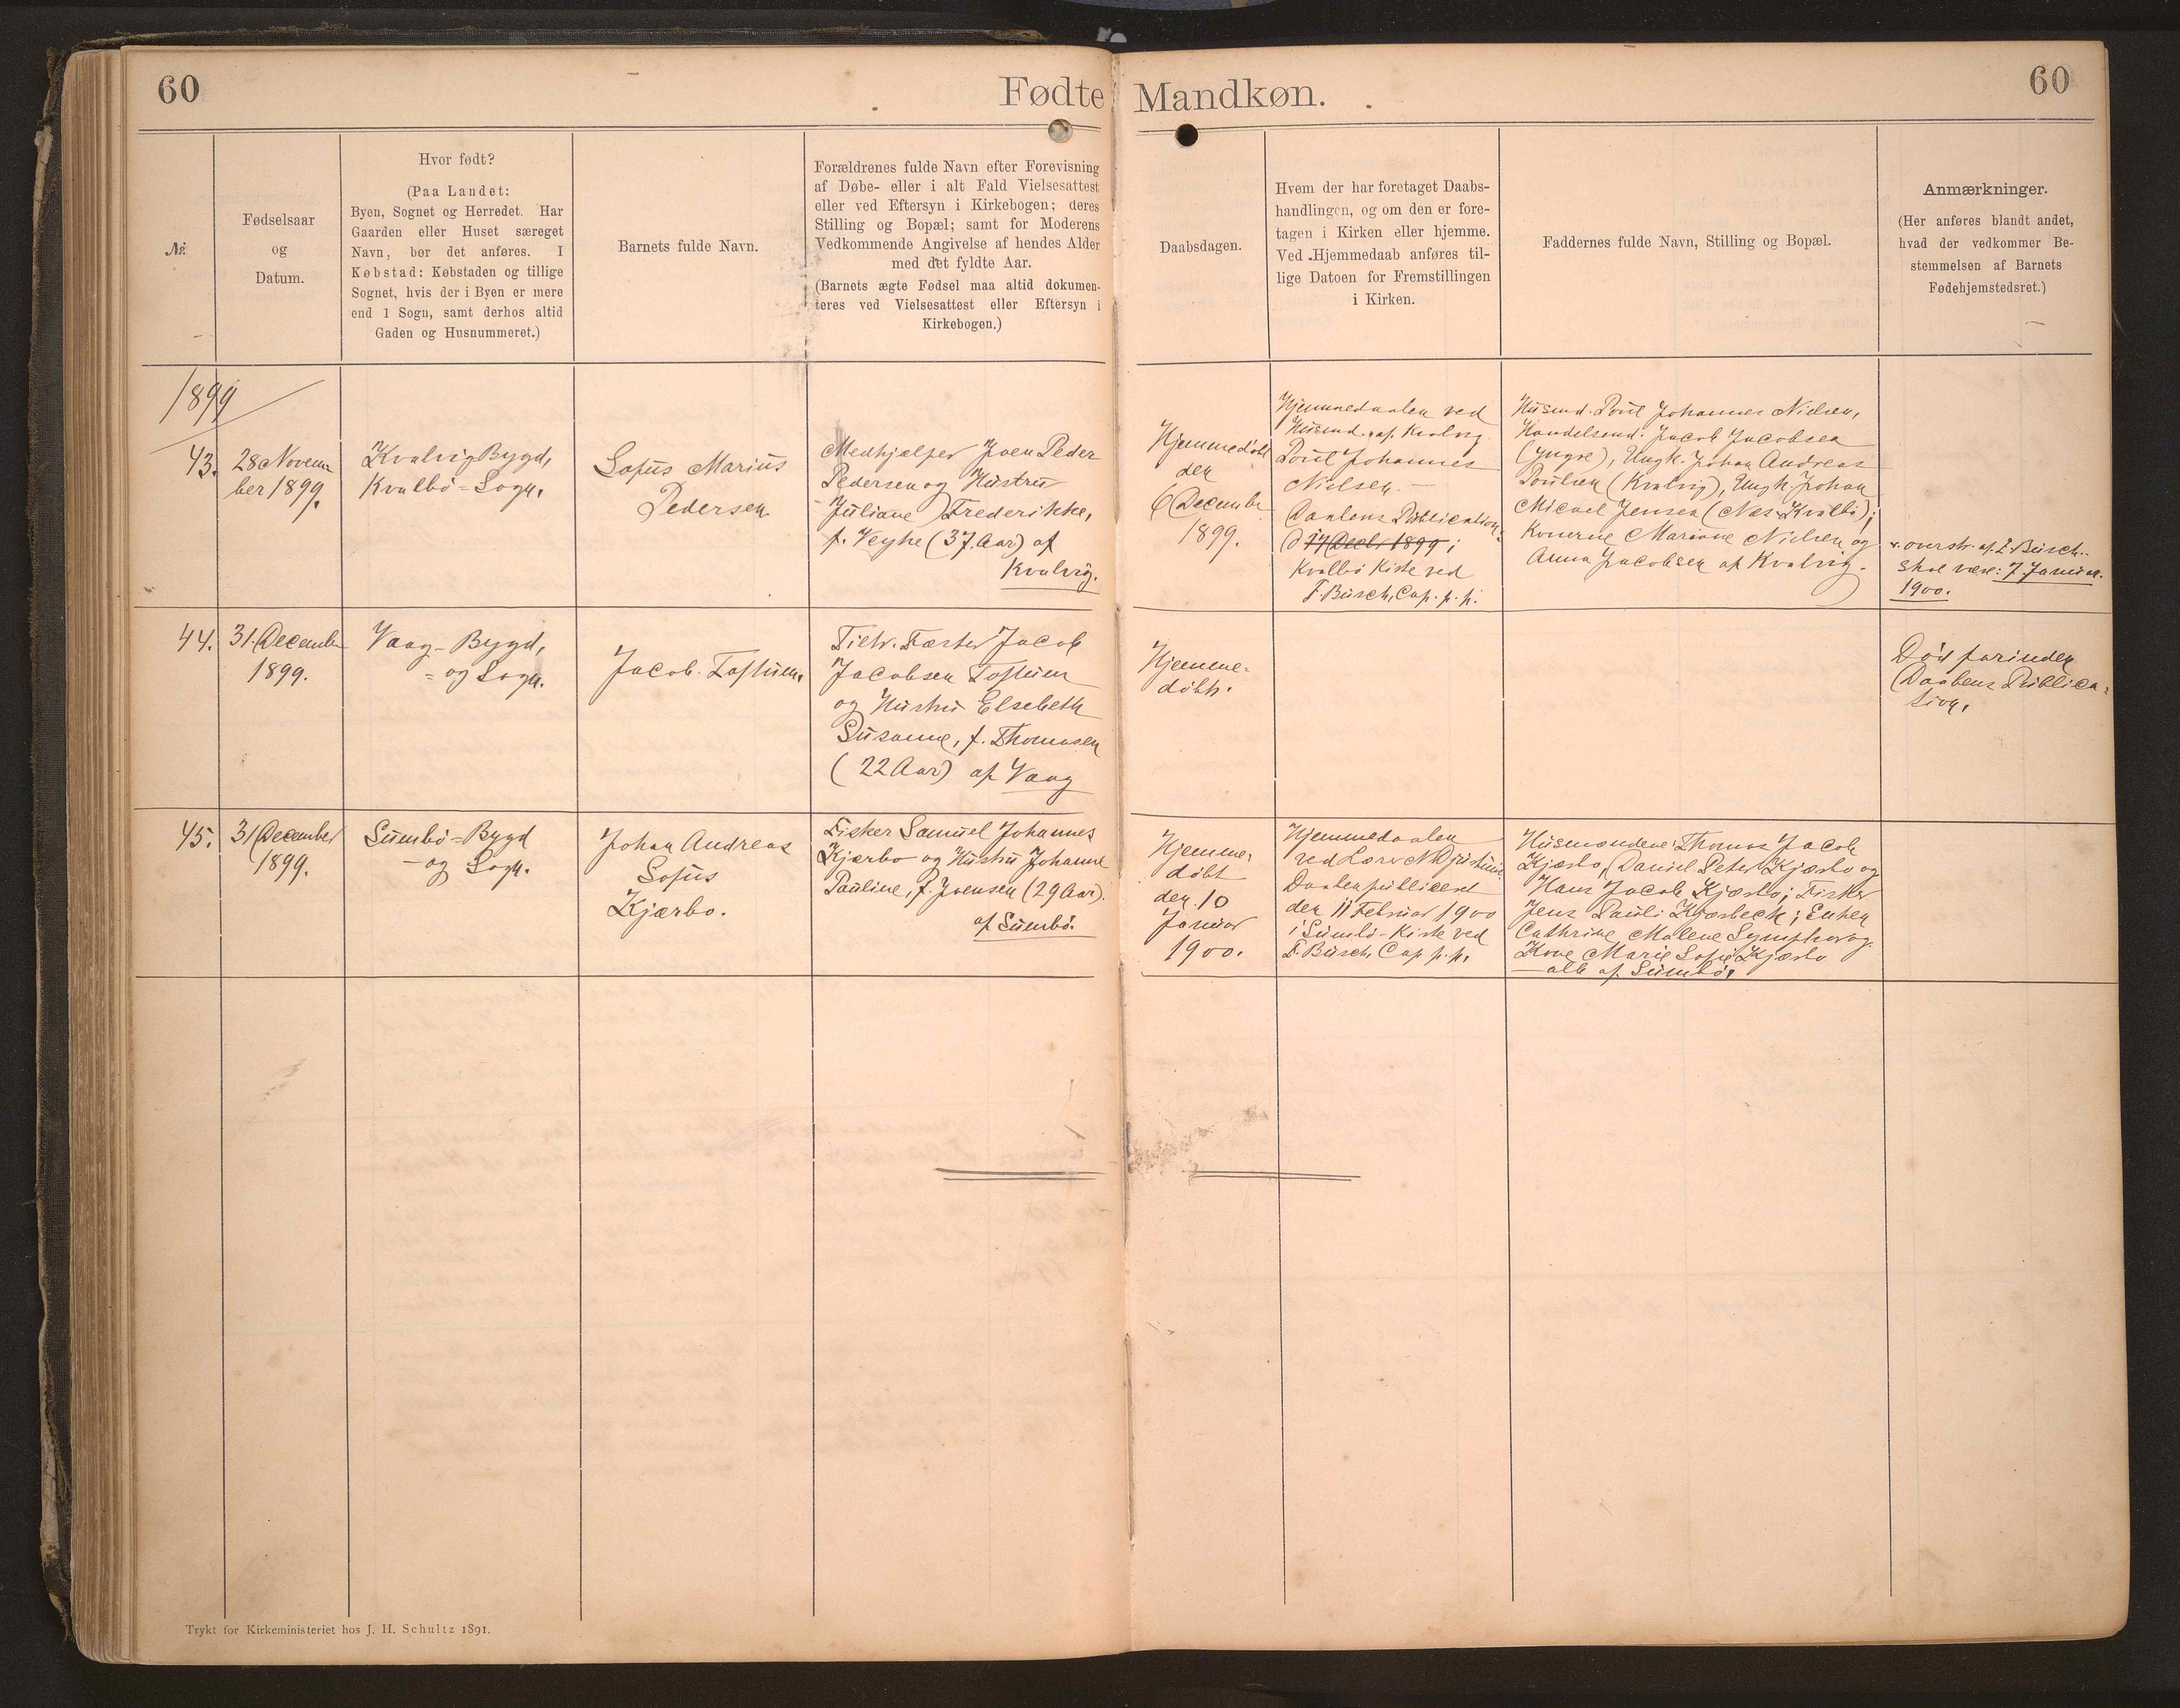 60
Fødte Mandkøn.
60
№
Fødselsaar
og
Datum.
Hvor født?
(Paa Landet:
Byen, Sognet og Herredet. Har
Gaarden eller Huset særeget
Navn, bør det anføres. I
Købstad: Købstaden og tillige
Sognet, hvis der i Byen er mere
end 1 Sogn, samt derhos altid
Gaden og Husnummeret.)
Barnets fulde Navn.
Forældrenes fulde Navn efter Forevisning
af Døbe- eller i alt Fald Vielsesattest
eller ved Eftersyn i Kirkebogen; deres
Stilling og Bopæl; samt for Moderens
Vedkommende Angivelse af hendes Alder
med det fyldte Aar.
(Barnets ægte Fødsel maa altid dokumen-
teres ved Vielsesattest eller Eftersyn i
Kirkebogen.)
Daabsdagen.
Hvem der har foretaget Daabs-
handlingen, og om den er fore-
tagen i Kirken eller hjemme.
Ved Hjemmedaab anføres til-
lige Datoen for Fremstillingen
i Kirken.
Faddernes fulde Navn, Stilling og Bopæl.
Anmærkninger.
(Her anføres blandt andet,
hvad der vedkommer Be-
stemmelsen af Barnets
Fødehjemstedsret.)
1899
43.
28 Novem-
ber 1899.
Kvalvig Bygd,
Kvalbö-Sogn.
Sofus Marius
Pedersen
Medhjælper Joen Peder
Pedersen og Hustru
Juliane Frederikke,
f. Veyhe (37 Aar) af
Kvalvig.
Hjemmedöbt
den
6 December
1899.
Hjemmedaaben ved
Husmd. af Kvalvig
Poul Johannes
Nielsen. —
Daabens Publication
d 17 Decbr 1899 i
Kvalbö Kirke ved
F. Busch, Cap. p. p.
Husmd. Poul Johannes Nielsen,
Handelsmd. Jacob Jacobsen
(yngre), Ungk. Johan Andreas
Poulsen (Kvalvig), Ungk. Johan
Micael Jensen (Næs-Kvalbö);
Konerne Mariane Nielsen og
Anna Jacobsen af Kvalvig.
overstr. af F. Busch.
skal være: 7 Januar
1900.
44.
31. December
1899.
Vaag-Bygd,
= og Sogn.
Jacob Toftum.
Fæster Jacob
Jacobsen Toftum
og Hustru Elsebeth
Susanne, f. Thomasen
(22 Aar) af Vaag
Hjemme=
döbt.
Död forinden
Daabens Publica=
tion.
45.
31 December
1899.
Sumbö-Bygd
- og Sogn.
Johan Andreas
Sofus
Kjærbo.
Fisker Samuel Johannes
Kjærbo og Hustru Johanne
Pauline, f. Joensen (29 Aar).
af Sumbö.
Hjemme-
döbt
den 10
Januar
1900.
Hjemmedaaben
ved Lærer
Daaben publiceret
den 11 Februar 1900
i Sumbö-Kirke ved
F. Busch, Cap p. p.
Husmændene Thomas Jacob
Kjærbo, Daniel Peter Kjærbo og
Hans Jacob Kjærbo; Fisker
Jens Pauli Kjærbech; Enken
Cathrine Malene og
Kone Marie Sofie Kjærbo
— alle af Sumbö.
Trykt for Kirkeministeriet hos J. H. Schultz 1891.